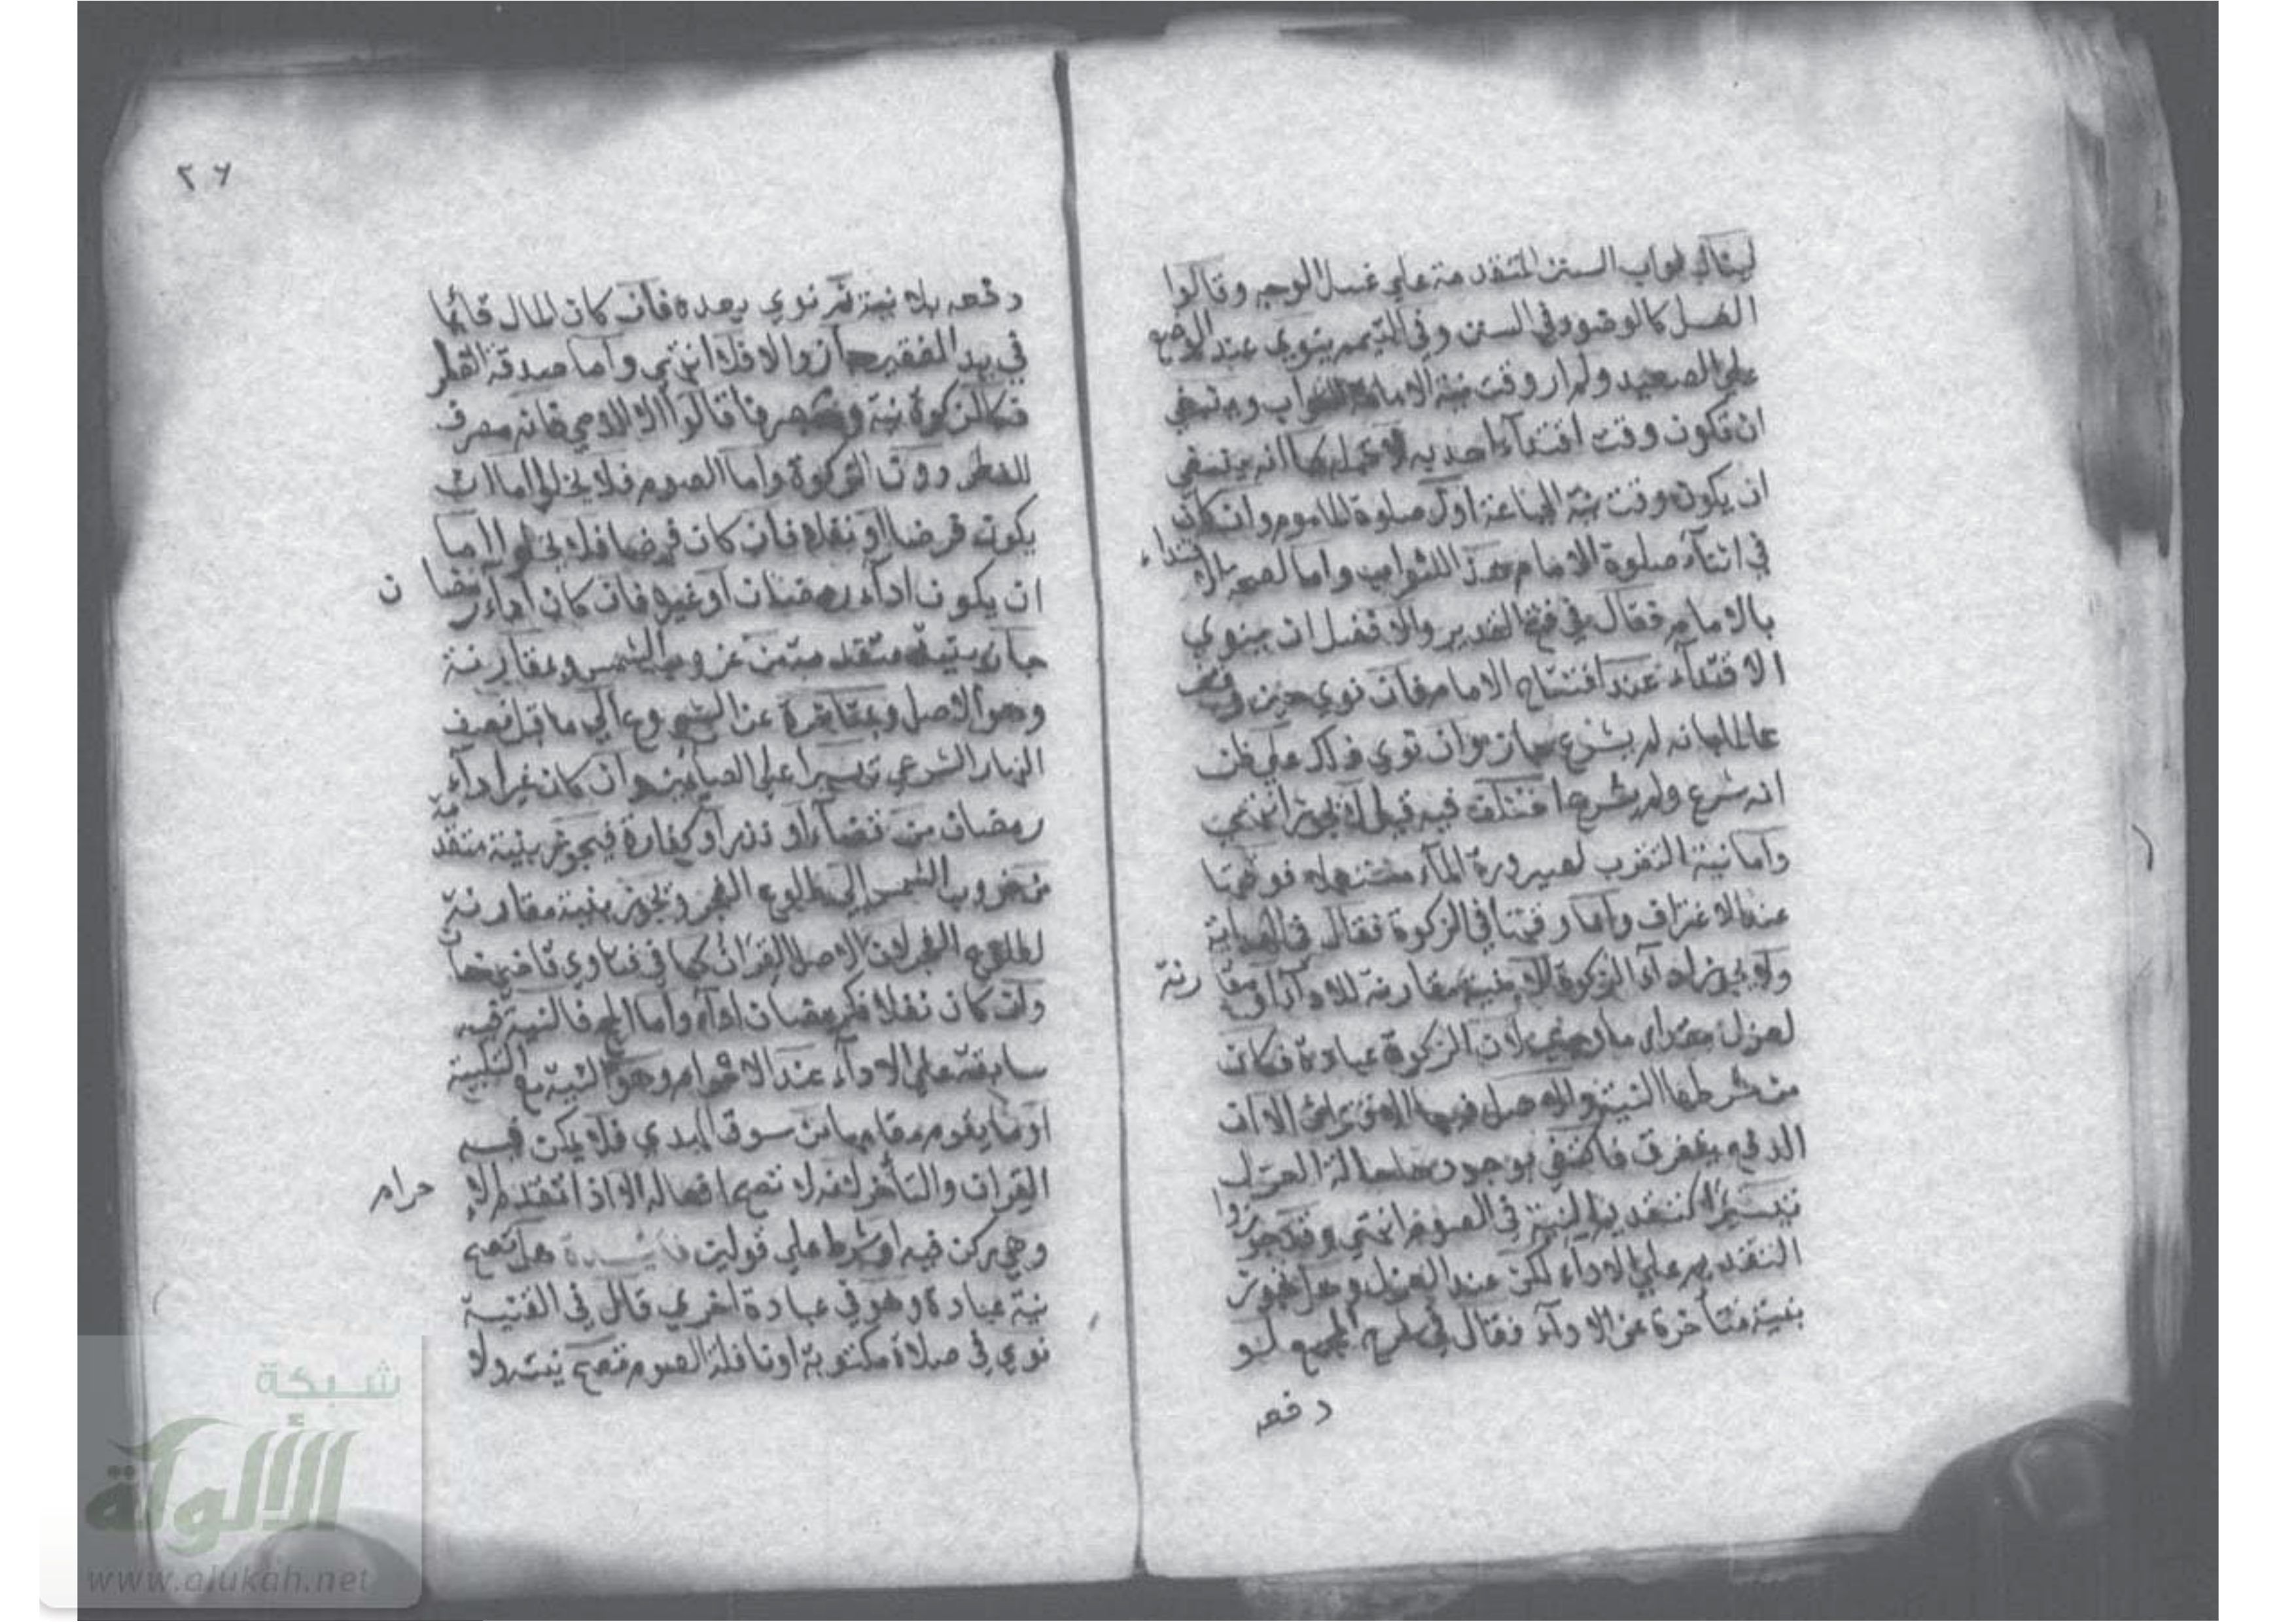 لينال ثواب السنن المتقدمة علي غسل الوجه وقالوا
الغسل كالوضوء في السنن وفي التيمم ينوي عند الوضع
علي الصعيد ولم ار وقت نية الامامة للثواب وينبغي
ان تكون وقت اقتداء احد به لا قبله كما انه ينبغي
ان يكون وقت نية الجماعة اول صلوة الماموم وان كان
في اثناء صلوة الامام هذا للثواب واما لصحة الاقتداء
بالامام فقال في فتح القدير والافضل ان ينوي
الاقتداء عند افتتاح الامام فان نوي حين وقف
عالما بانه لم يشرع جاز وان نوي ذلك علي ظن
انه شرع ولم يشرع اختلف فيه قيل لا يجوز انتهي
واما نية التقرب لصيرورة الماء مستعملا فوقتها
عند الاغتراف واما وقتها في الزكوة فقال في الهداية
ولا يجوز اداء الزكوة الا بنية مقارنة للاداء او مقارنة
لعزل مقدار ما وجب لان الزكوة عبادة فكان
من شرطها النية والاصل فيها الاقتران الا ان
الدفع يتفرق فاكتفي بوجودها حالة العزل
تيسيرا كتقديم النية في الصوم انتهي وقد جوزوا
التقديم علي الاداء لكن عند العزل وهل تجوز
بنية متأخرة عن الاداء فقال في شرح المجمع لو
دفعه
٢٦
دفعه بلا نية ثم نوي بعده فان كان المال قائما
في يد الفقير جاز والا فلا انتهي واما صدقة الفطر
فكالزكوة نية ومصرفا قالوا الا الذمي فانه مصرف
للفطر دون الزكوة واما الصوم فلا يخلو اما ان
يكون فرضا او نفلا فان كان فرضا فلا يخلو اما
ان يكون اداء رمضان او غيره فان كان اداء رمضان
جاز بنية متقدمة من غروب الشمس وبمقارنة
وهو الاصل وبمتاخرة عن الشروع الي ما قبل نصف
النهار الشرعي تيسيرا علي الصائمين وان كان غير اداء
رمضان من قضاء او نذر او كفارة فيجوز بنية متقدمة
من غروب الشمس الي طلوع الفجر وتجوز بنية مقارنة
لطلوع الفجر لان الاصل القران كما في فتاوي قاضيخان
وان كان نفلا فكرمضان اداء واما الحج فالنية فيه
سابقة علي الاداء عند الاحرام وهو النية مع التلبية
او ما يقوم مقامها من سوق الهدي فلا يمكن فيه
القران والتأخر لانه لا تصح افعاله الا اذا تقدم الاحرام
وهي ركن فيه او شرط علي قولين فائدة هل تصح
نية عبادة وهو في عبادة اخري قال في القنية
نوي في صلاة مكتوبة او نافلة الصوم تصح نيته ولا
شبكة
الألوكة
www.alukah.net